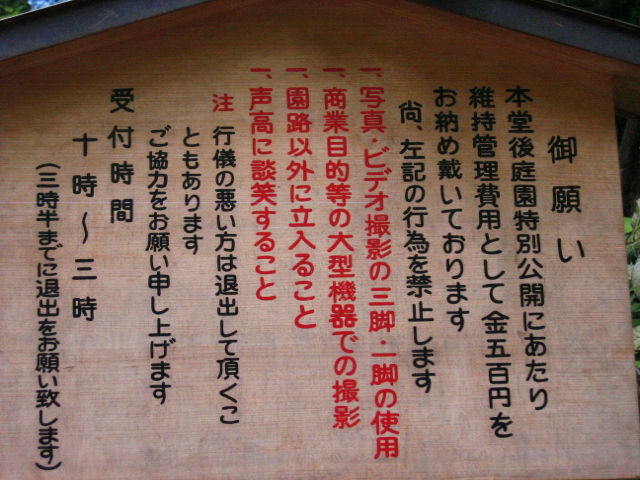 御願い
本堂後庭園特別公開にあたり
維持管理費用として金五百円を
お納め戴いております
尚、左記の行為を禁止します
一、写真・ビデオ撮影の三脚・一脚の使用
一、商業目的等の大型機器での撮影
一、園路以外に立入ること
一、声高に談笑すること
注 行儀の悪い方は退出して頂くこ
ともあります
ご協力をお願い申し上げます
受付時間
十時～三時
(三時半までに退出をお願い致します)